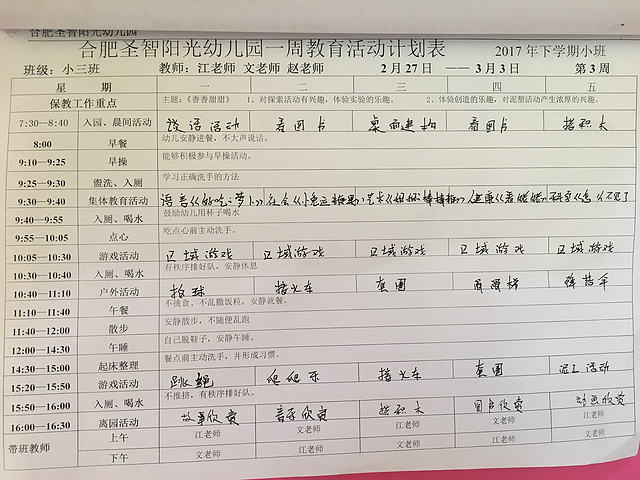 合肥圣智阳光幼儿园
合肥圣智阳光幼儿园一周教育活动计划表 2017年下学期小班
班级：小三班 教师：江老师 文老师 赵老师 2月27日 ——3月3日 第3周
星 期 一 二 三 四 五
保教工作重点 主题：《香香甜甜》 1、对探索活动有兴趣，体验实验的乐趣。 2、体验创造的乐趣，对泥塑活动产生浓厚的兴趣。
7:30—8:40 入园、晨间活动 谈话活动 看图书 桌面建构 看图书 搭积木
8:00 早餐 幼儿安静进餐，不大声说话。
9:10—9:25 早操 能够积极参与早操活动。
9:25—9:30 盥洗、入厕 学习正确洗手的方法
9:30—9:40 集体教育活动 语言《好吃的萝卜》 社会 艺术 健康
9:40—9:55 入厕、喝水 鼓励幼儿用杯子喝水
9:55—10:05 点心 吃点心前主动洗手。
10:05—10:30 游戏活动 区域游戏 区域游戏 区域游戏 区域游戏 区域游戏
10:30—10:40 入厕、喝水 有秩序排好队，安静休息
10:40—11:10 户外活动 拍球 接火车 套圈
11:10—11:40 午餐 不挑食、不乱撒饭粒，安静就餐。
11:40—12:00 散步 安静散步，不随便乱跑
12:00—14:30 午睡 自己脱鞋子，安静午睡。
14:30—15:00 起床整理 餐点前主动洗手，并形成习惯。
15:20—15:50 游戏活动 跳绳 爬爬乐 接火车 套圈 泥工活动
15:50—16:00 入厕、喝水 不推挤，有秩序排好队。
16:00—16:30 离园活动 故事欣赏 音乐欣赏 搭积木 图片欣赏 动画欣赏
带班教师 上午 江老师 文老师 江老师 文老师 江老师
下午 文老师 江老师 文老师 江老师 文老师